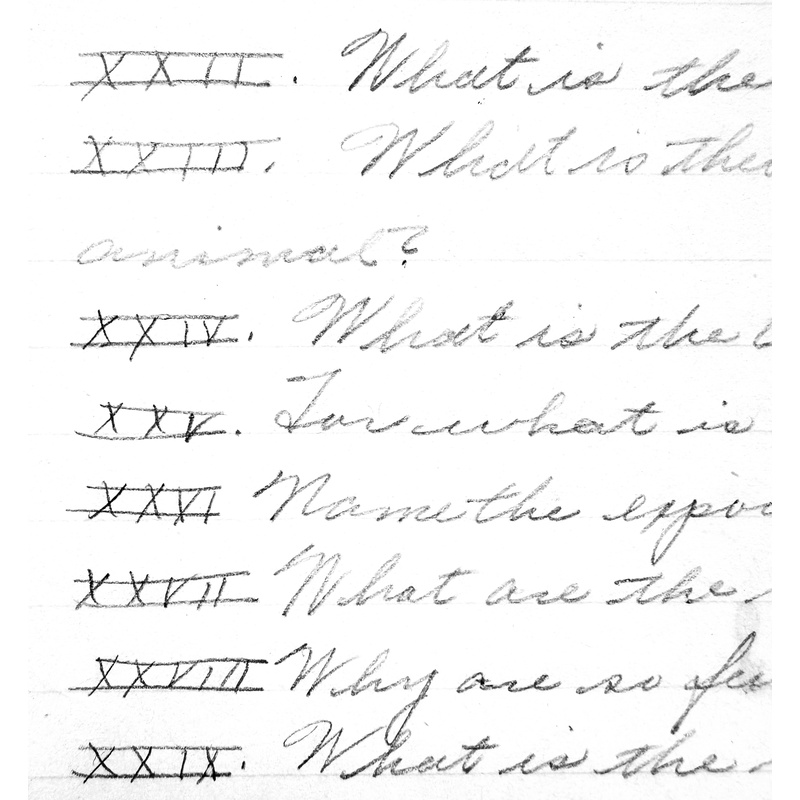 XXII. What is the
XXIII. What is the
animal?
XXIV. What is the
XXV. For what is
XXVI Name the expo
XXVII What are the
XXVIII Why are so fe
XXIX. What is the